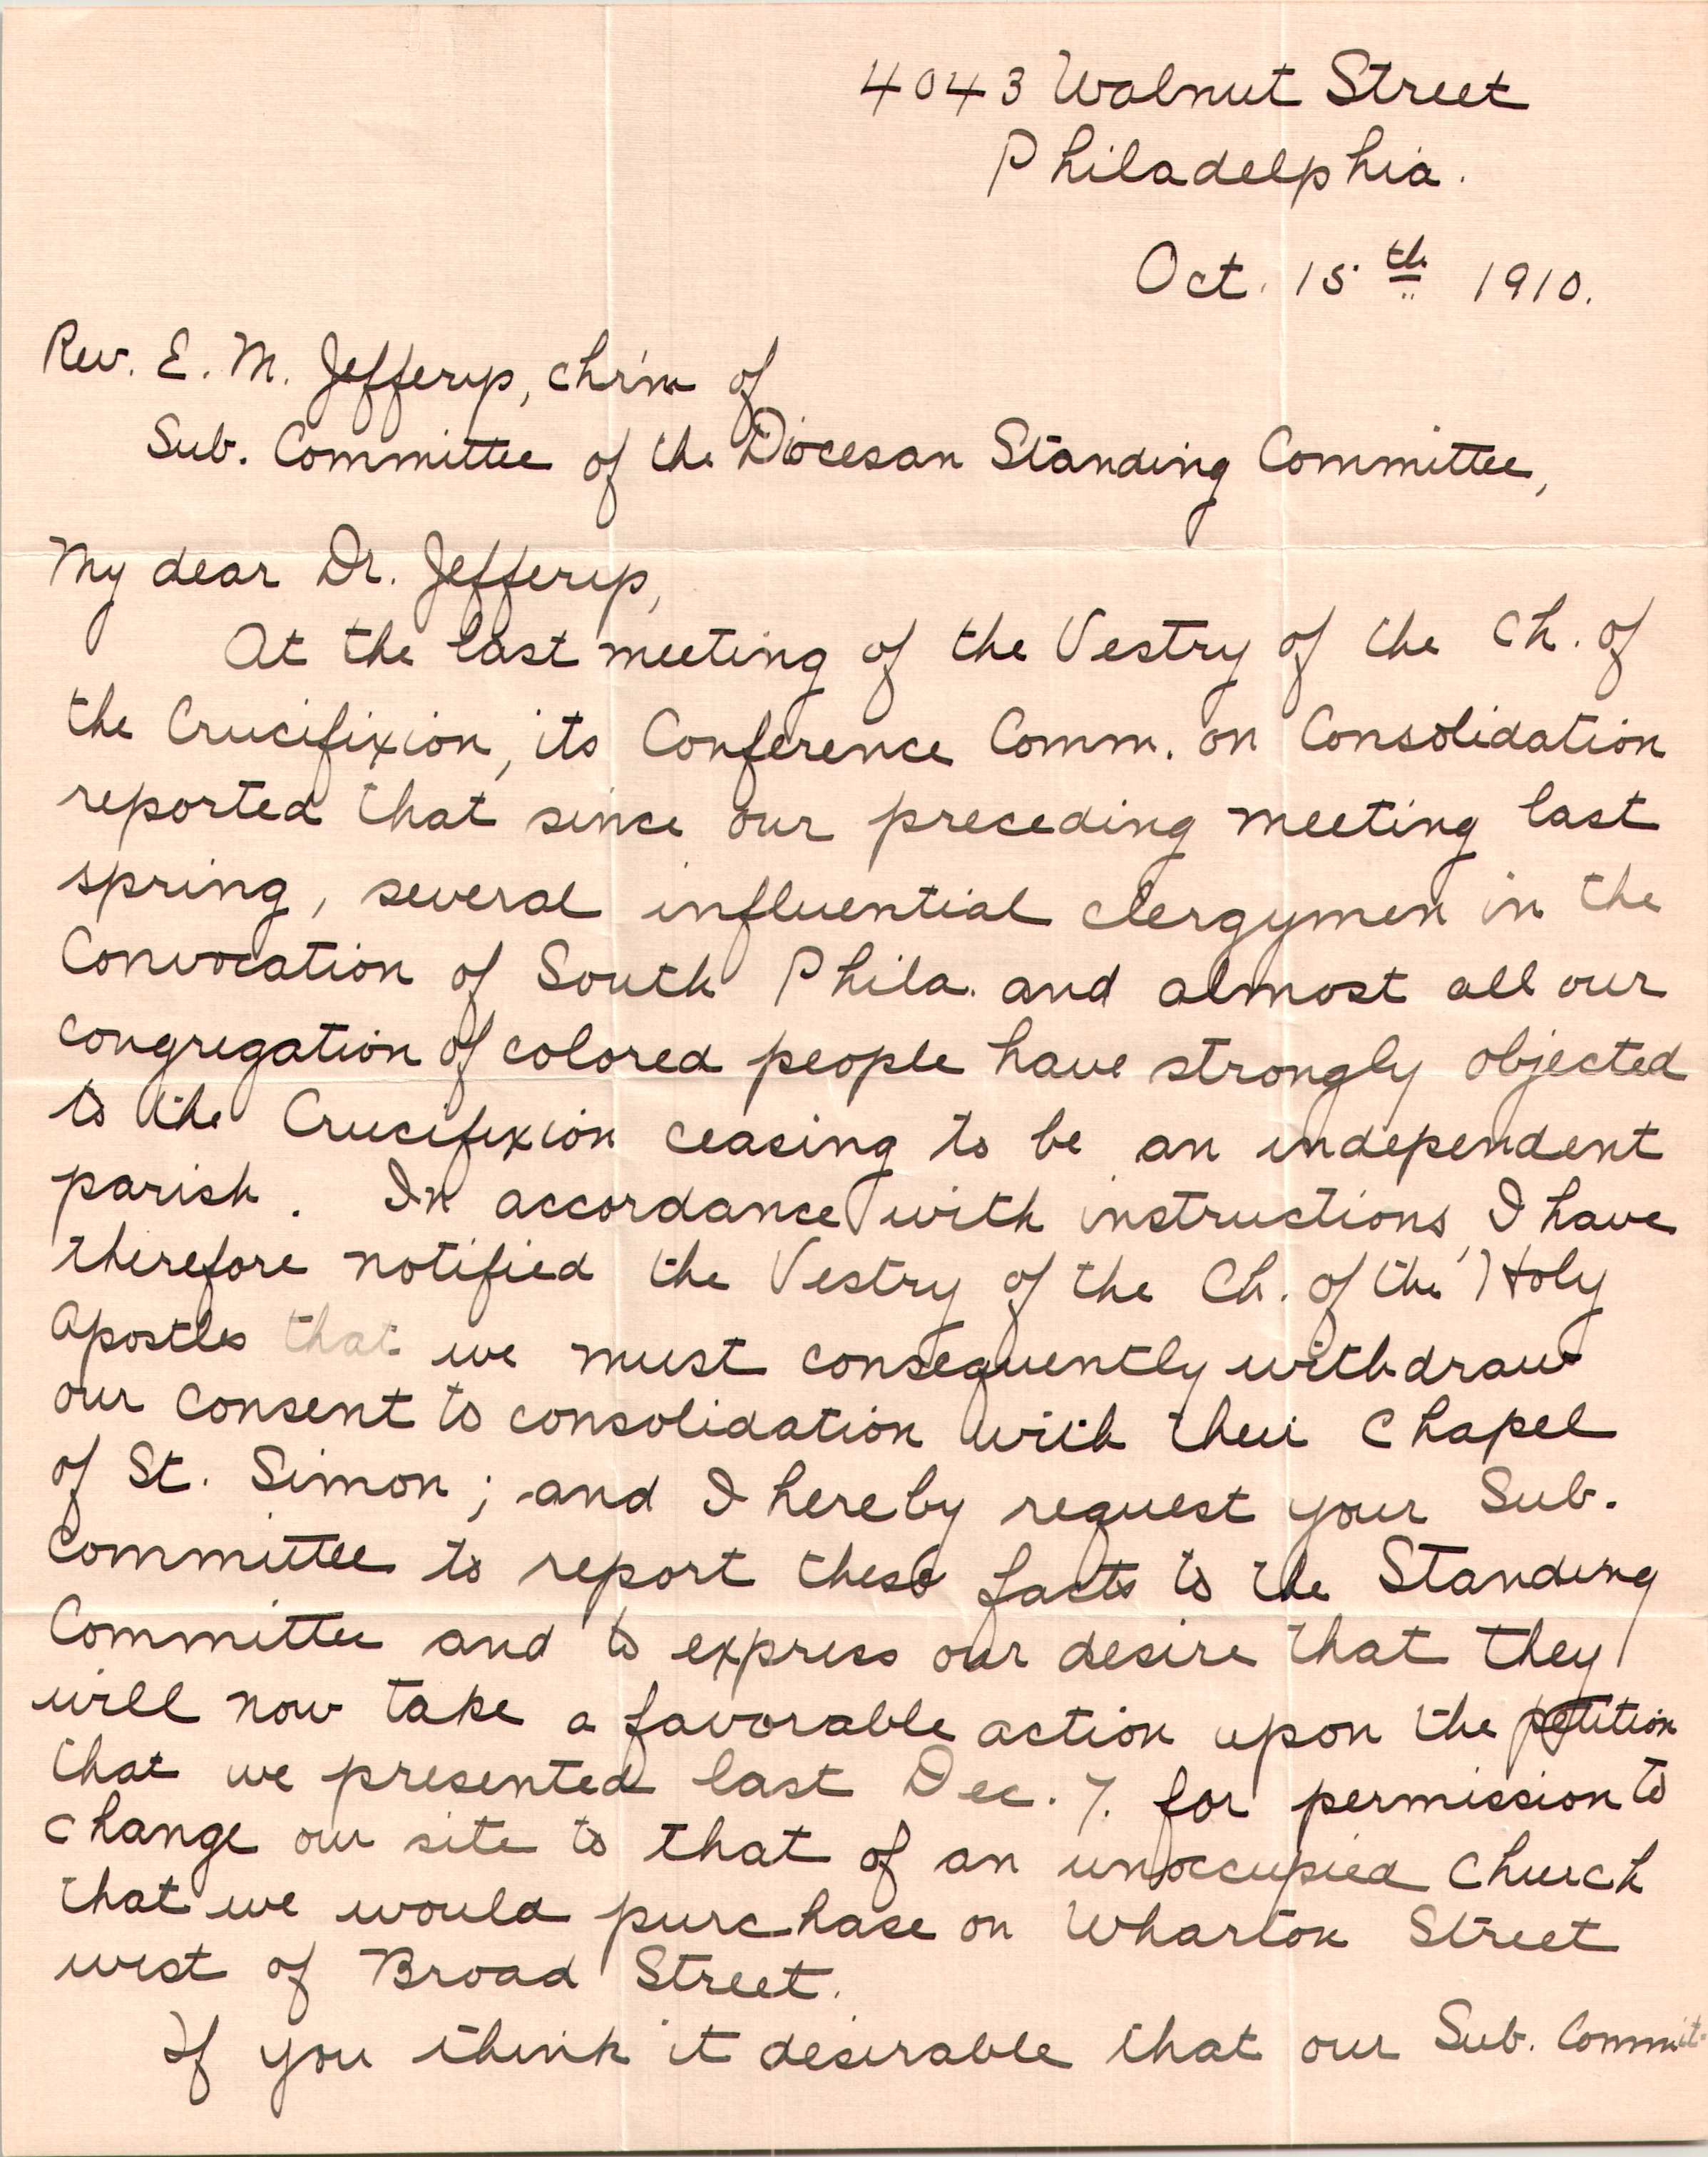 4043 Walnut Street
Philadelphia.
Oct. 15th 1910.
Rev. E. M. Jefferys, chr'm of
Sub. Committee of the Diocesan Standing Committee,
My dear Dr. Jefferys,
At the last meeting of the Vestry of the Ch. of
the Crucifixion, its Conference Comm. on Consolidation
reported that since our preceding meeting last
spring, several influential clergymen in the
Convocation of South Phila. and almost all our
congregation of colored people have strongly objected
to the Crucifixion ceasing to be an independent
parish. In accordance with instructions, I have
therefore notified the Vestry of the Ch. of the Holy
Apostles that we must consequently withdraw
our consent to consolidation with their Chapel
of St. Simon; and I hereby request your Sub.
Committee to report these facts to the Standing
Committee and to express our desire that they
will now take a favorable action upon the petition
that we presented last Dec. 7. for permission to
change our site to that of an unoccupied church
that we would purchase on Wharton Street
west of Broad Street.
If you think it desirable that our Sub. Commit-